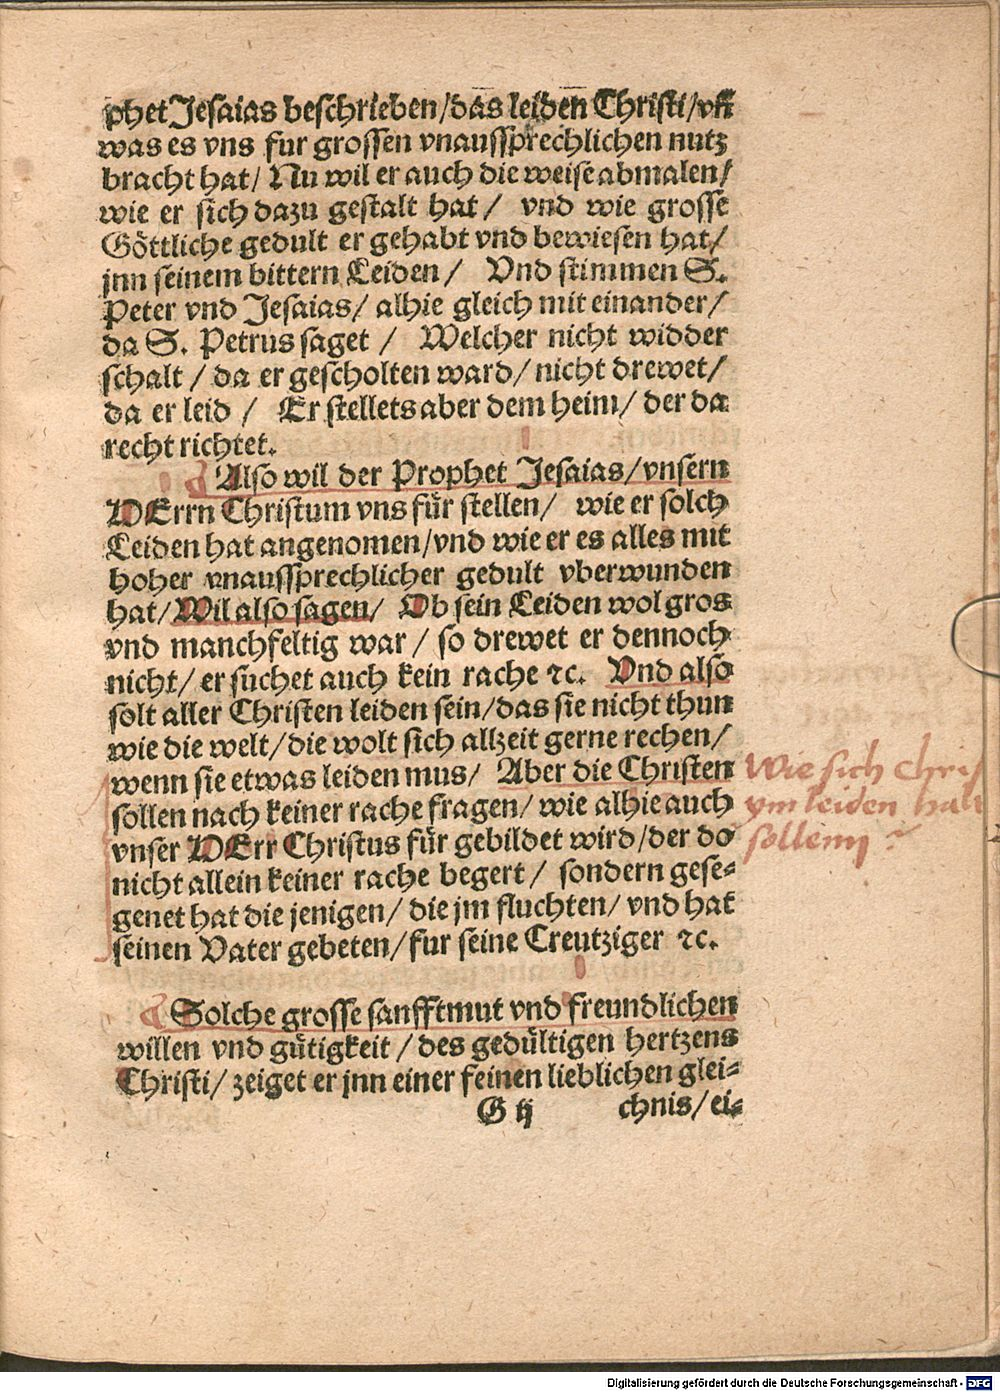 phet Jesaias beschrieben/das leiden Christi/vñ
was es vns fur grossen vnaussprechlichen nutz
bracht hat/ Nu wil er auch die weise abmalen/
wie er sich dazu gestalt hat/ vnd wie grosse
Göttliche gedult er gehabt vnd bewiesen hat/
jnn seinem bittern Leiden/ Vnd stimmen S.
Peter vnd Jesaias/ alhie gleich mit einander/
da S. Petrus saget / Welcher nicht widder
schalt / da er gescholten ward/ nicht drewet/
da er leid / Er stellets aber dem heim/ der da
recht richtet.
Also wil der Prophet Jesaias/vnsern
HErrn Christum vns für stellen/ wie er solch
Leiden hat angenomen/vnd wie er es alles mit
hoher vnaussprechlicher gedult vberwunden
hat/ Wil also sagen/ Ob sein Leiden wol gros
vnd manchfeltig war / so drewet er dennoch
nicht/ er suchet auch kein rache ꝛc. Vnd also
solt aller Christen leiden sein/das sie nicht thun
wie die welt/die wolt sich allzeit gerne rechen/
wenn sie etwas leiden mus/ Aber die Christen
sollen nach keiner rache fragen/ wie alhie auch
vnser HErr Christus für gebildet wird/der do
nicht allein keiner rache begert/ sondern gese-
genet hat die jenigen/ die jm fluchten/ vnd hat
seinen Vater gebeten/fur seine Creutziger ꝛc.
Wie sich Chris
ym leiden halt
sollenn ?
Solche grosse sanfftmut vnd freundlichen
willen vnd gütigkeit /des gedültigen hertzens
Christi/ zeiget er jnn einer feinen lieblichen glei-
G ij chnis/ ei-
Digitalisierung gefördert durch die Deutsche Forschungsgemeinschaft - DFG